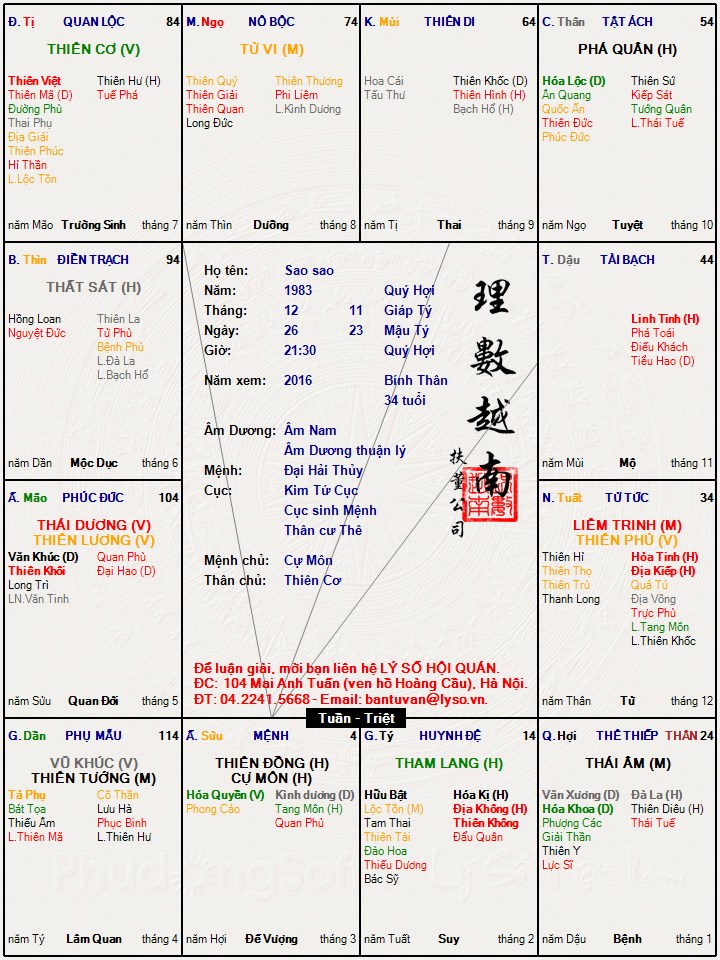 Đ. Tị QUAN LỘC 84
THIÊN CƠ (V)
Thiên Việt
Thiên Mã (D)
Đường Phù
Thai Phụ
Địa Giải
Thiên Phúc
Hỉ Thần
L.Lộc Tồn
Thiên Hư (H)
Tuế Phá
năm Mão Trường Sinh tháng 7
M. Ngọ NÔ BỘC 74
TỬ VI (M)
Thiên Quý
Thiên Giải
Thiên Quan
Long Đức
Thiên Thương
Phi Liêm
L.Kình Dương
năm Thìn Dưỡng tháng 8
K. Mùi THIÊN DI 64
Hoa Cái
Tấu Thư
Thiên Khốc (D)
Thiên Hình (H)
Bạch Hổ (H)
năm Tị Thai tháng 9
C. Thân TẬT ÁCH 54
PHÁ QUÂN (H)
Hóa Lộc (D)
Ân Quang
Quốc Ấn
Thiên Đức
Phúc Đức
Thiên Sứ
Kiếp Sát
Tướng Quân
L.Thái Tuế
năm Ngọ Tuyệt tháng 10
B. Thìn ĐIỀN TRẠCH 94
THẤT SÁT (H)
Hồng Loan
Nguyệt Đức
Thiên La
Tử Phù
Bệnh Phù
L.Đà La
L.Bạch Hổ
năm Dần Mộc Dục tháng 6
Họ tên: Sao sao
Năm: 1983 Quý Hợi
Tháng: 12 11 Giáp Tý
Ngày: 26 23 Mậu Tý
Giờ: 21:30 Quý Hợi
Năm xem: 2016 Bính Thân
34 tuổi
Âm Dương: Âm Nam
Âm Dương thuận lý
Mệnh: Đại Hải Thủy
Cục: Kim Tứ Cục
Cục sinh Mệnh
Thân cư Thê
Mệnh chủ: Cự Môn
Thân chủ: Thiên Cơ
理數越南
扶董公司
Để luận giải, mời bạn liên hệ LÝ SỐ HỘI QUÁN.
ĐC: 104 Mai Anh Tuấn (ven hồ Hoàng Cầu), Hà Nội.
ĐT: 04.2241.5668 - Email: bantuvan@lyso.vn.
Tuần - Triệt
T. Dậu TÀI BẠCH 44
Linh Tinh (H)
Phá Toái
Điếu Khách
Tiểu Hao (D)
năm Mùi Mộ tháng 11
Ấ. Mão PHÚC ĐỨC 104
THÁI DƯƠNG (V)
THIÊN LƯƠNG (V)
Văn Khúc (D)
Thiên Khôi
Long Trì
LN.Văn Tinh
Quan Phù
Đại Hao (D)
năm Sửu Quan Đới tháng 5
N. Tuất TỬ TỨC 34
LIÊM TRINH (M)
THIÊN PHỦ (V)
Thiên Hỉ
Thiên Thọ
Thiên Trù
Thanh Long
Hỏa Tinh (H)
Địa Kiếp (H)
Quả Tú
Địa Võng
Trực Phù
L.Tang Môn
L.Thiên Khốc
năm Thân Tử tháng 12
G. Dần PHỤ MẪU 114
VŨ KHÚC (V)
THIÊN TƯỚNG (M)
Tả Phụ
Bát Tọa
Thiếu Âm
L.Thiên Mã
Cô Thần
Lưu Hà
Phục Binh
L.Thiên Hư
năm Tý Lâm Quan tháng 4
Ấ. Sửu MỆNH 4
THIÊN ĐỒNG (H)
CỰ MÔN (H)
Hóa Quyền (V)
Phong Cáo
Kình dương (D)
Tang Môn (H)
Quan Phủ
năm Hợi Đế Vượng tháng 3
G. Tý HUYNH ĐỆ 14
THAM LANG (H)
Hữu Bật
Lộc Tồn (M)
Tam Thai
Thiên Tài
Đào Hoa
Thiếu Dương
Bác Sỹ
Hóa Kị (H)
Địa Không (H)
Thiên Không
Đẩu Quân
năm Tuất Suy tháng 2
Q. Hợi THÊ THIẾP THÂN 24
THÁI ÂM (M)
Văn Xương (D)
Hóa Khoa (D)
Phượng Các
Giải Thần
Thiên Y
Lực Sĩ
Đà La (H)
Thiên Diêu (H)
Thái Tuế
năm Dậu Bệnh tháng 1